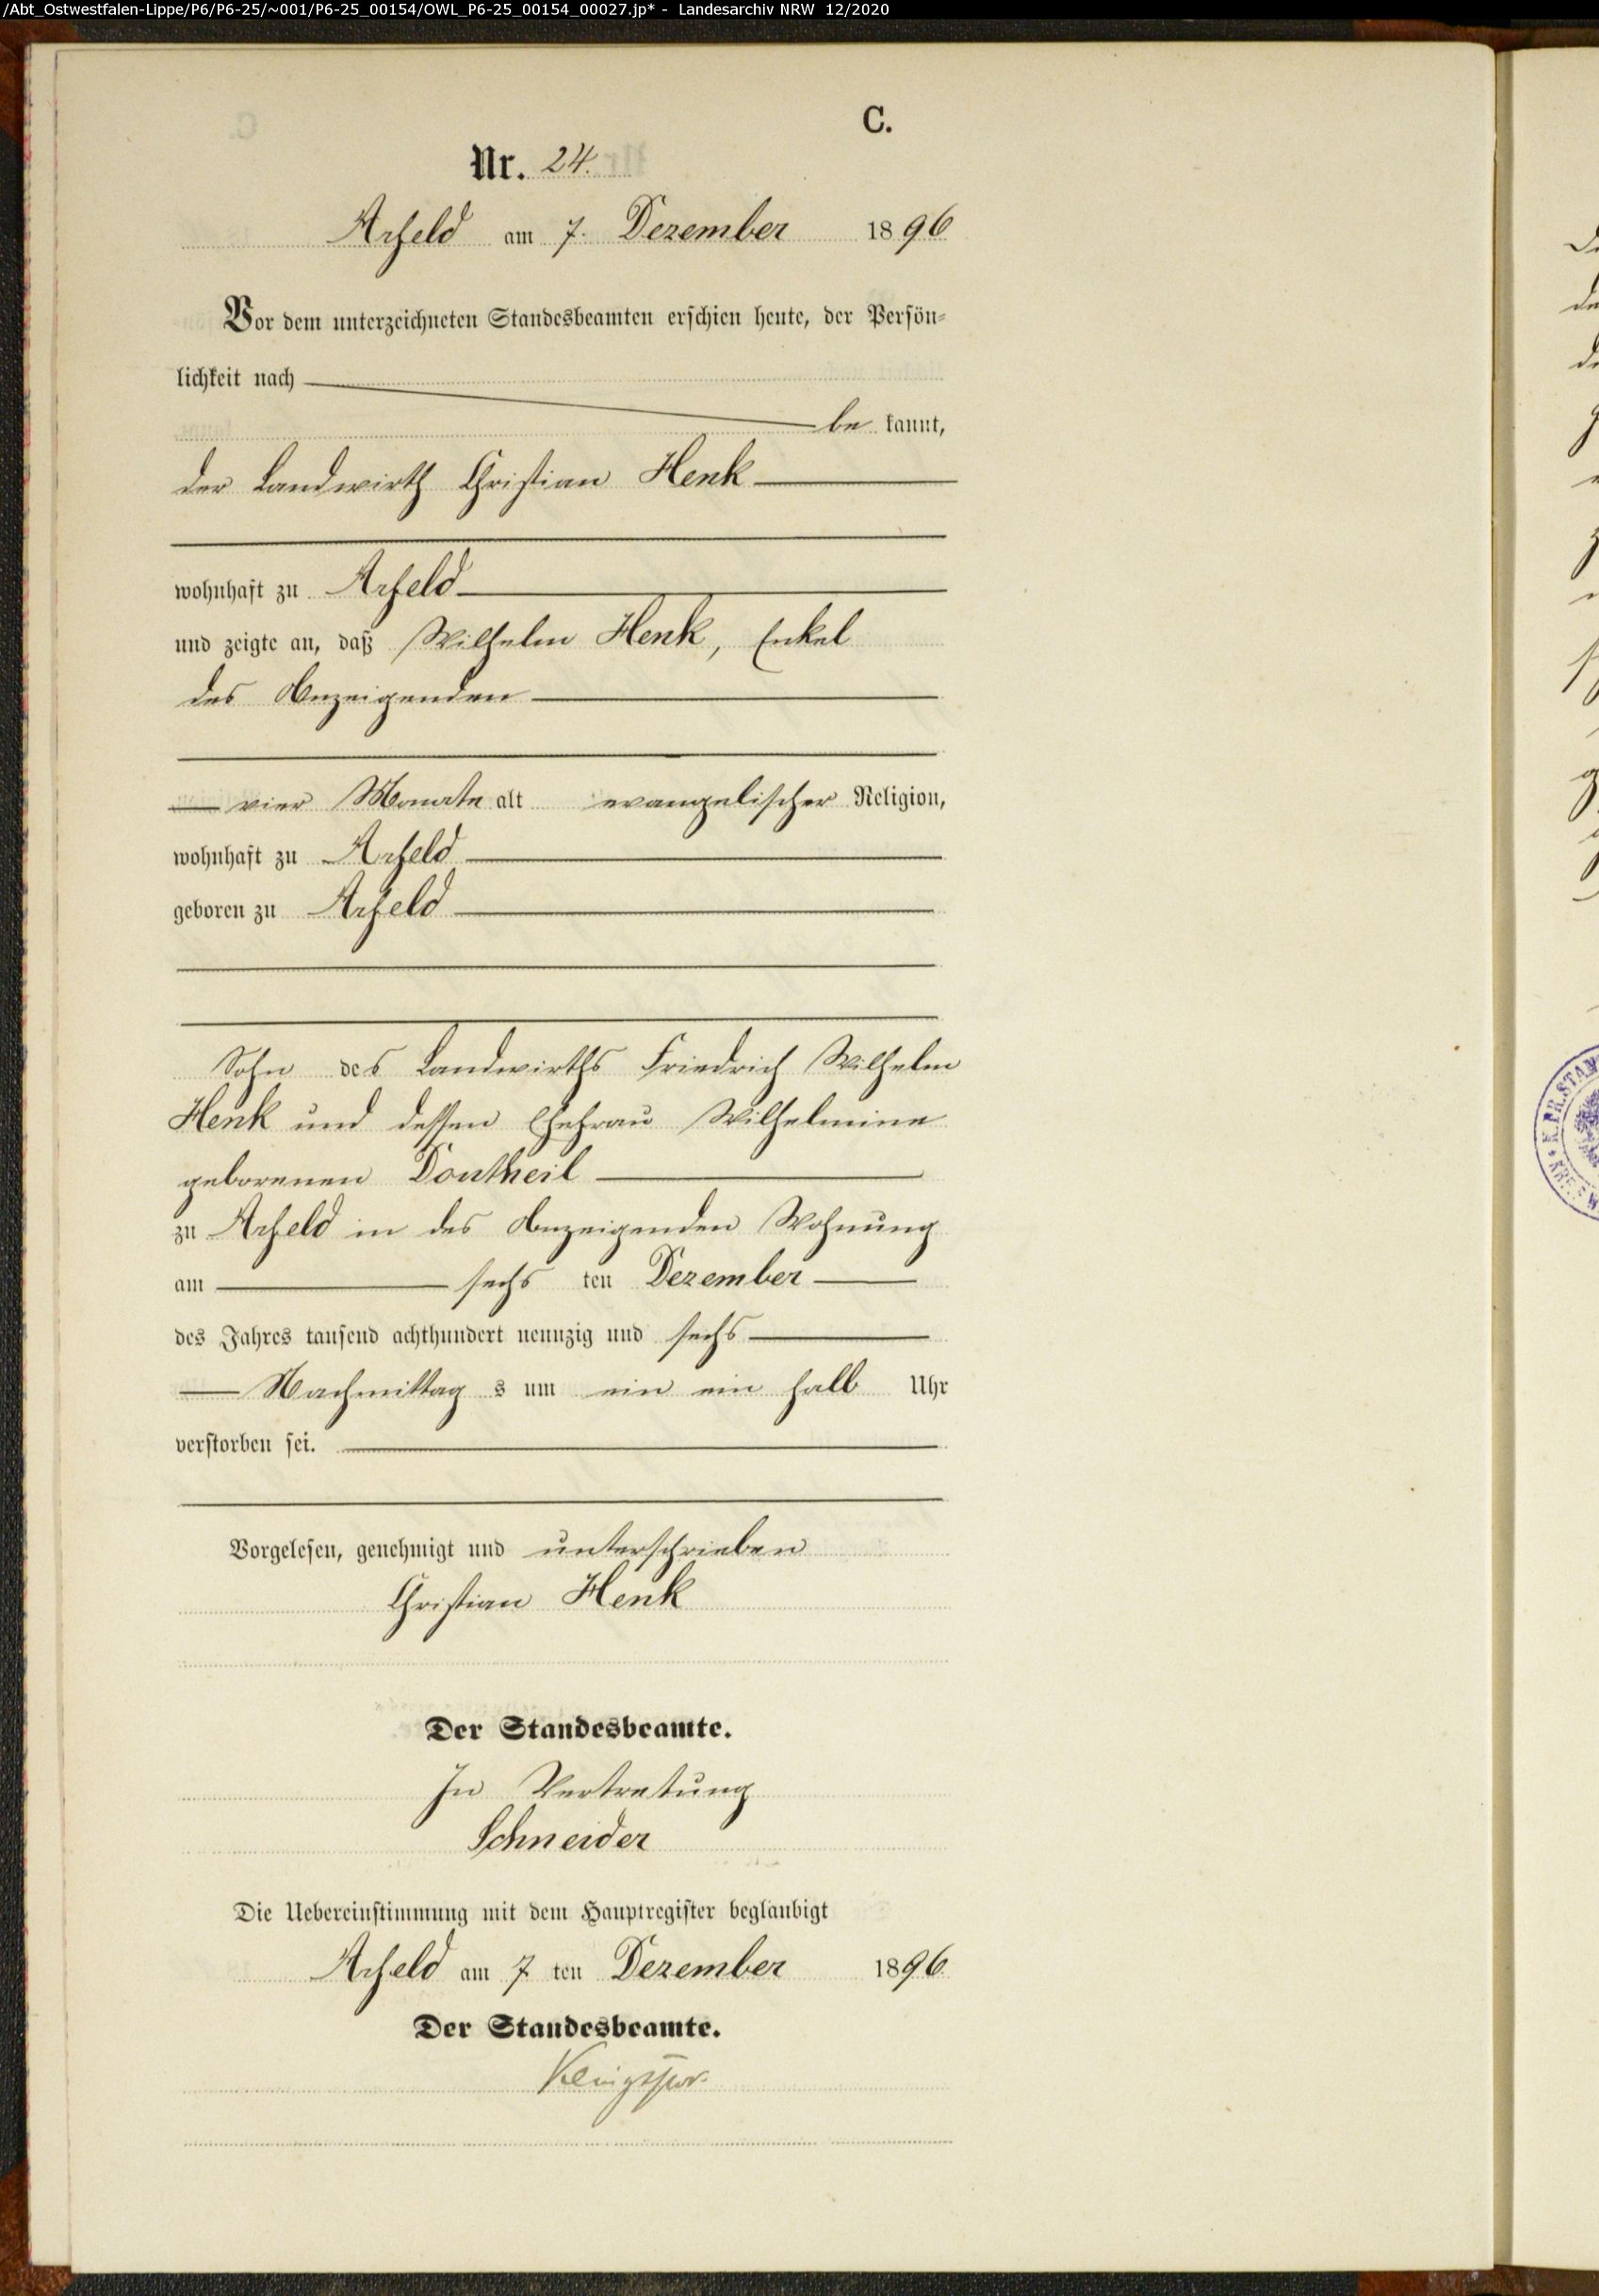 /Abt_Ostwestfalen-Lippe/P6/P6-25/~001/P6-25_00154/OWL_P6-25_00154_00027.jp* - Landesarchiv NRW 12/2020
C.
Nr. 24.
Arfeld am 7. Dezember 1896
Vor dem unterzeichneten Standesbeamten erschien heute, der Persön-
lichkeit nach
be kannt,
der Landwirth Christian Henk
wohnhaft zu Arfeld
und zeigte an, daß Wilhelm Henk, Enkel
des Anzeigenden
vier Monate alt evangelischer Religion,
wohnhaft zu Arfeld
geboren zu Arfeld
Sohn des Landwirths Friedrich Wilhelm
Henk und dessen Ehefrau Wilhelmine
geborenen Dontheil
zu Arfeld in des Anzeigenden Wohnung
am sechs ten Dezember
des Jahres tausend achthundert neunzig und sechs
Nachmittag s um ein ein halb Uhr
verstorben sei.
Vorgelesen, genehmigt und unterschrieben
Christian Henk
Der Standesbeamte.
In Vertretung
Schneider
Die Uebereinstimmung mit dem Hauptregister beglaubigt
Arfeld am 7 ten Dezember 1896.
Der Standesbeamte.
Klingspor.